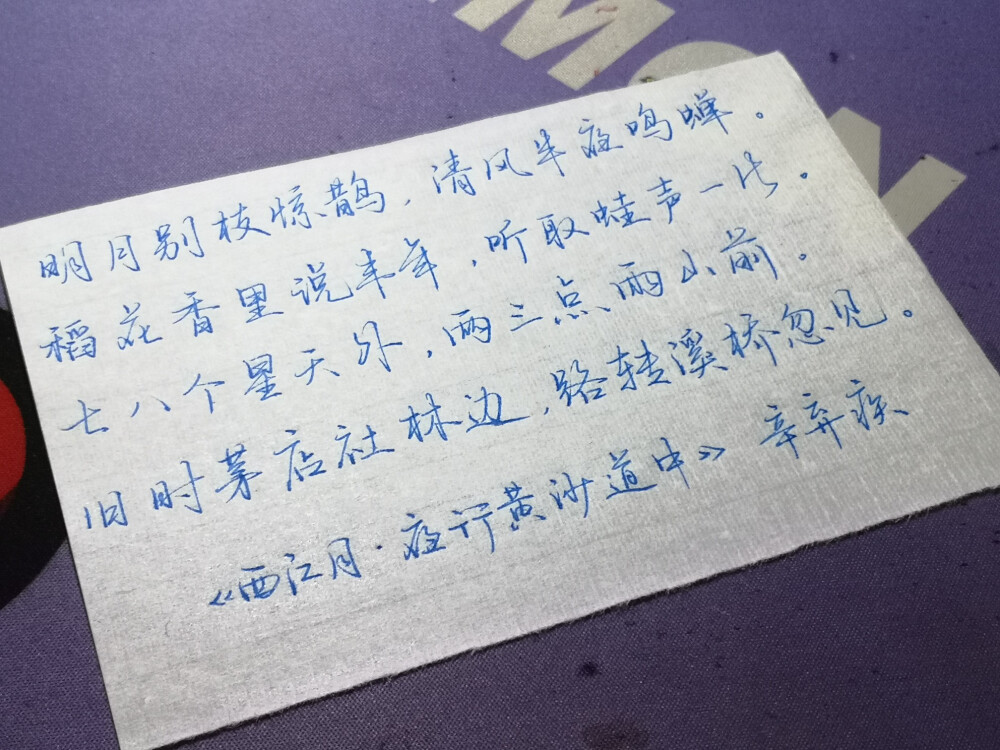 明月别枝惊鹊，清风半夜鸣蝉。
稻花香里说丰年，听取蛙声一片。
七八个星天外，两三点雨山前。
旧时茅店社林边，路转溪桥忽见。
《西江月·夜行黄沙道中》辛弃疾